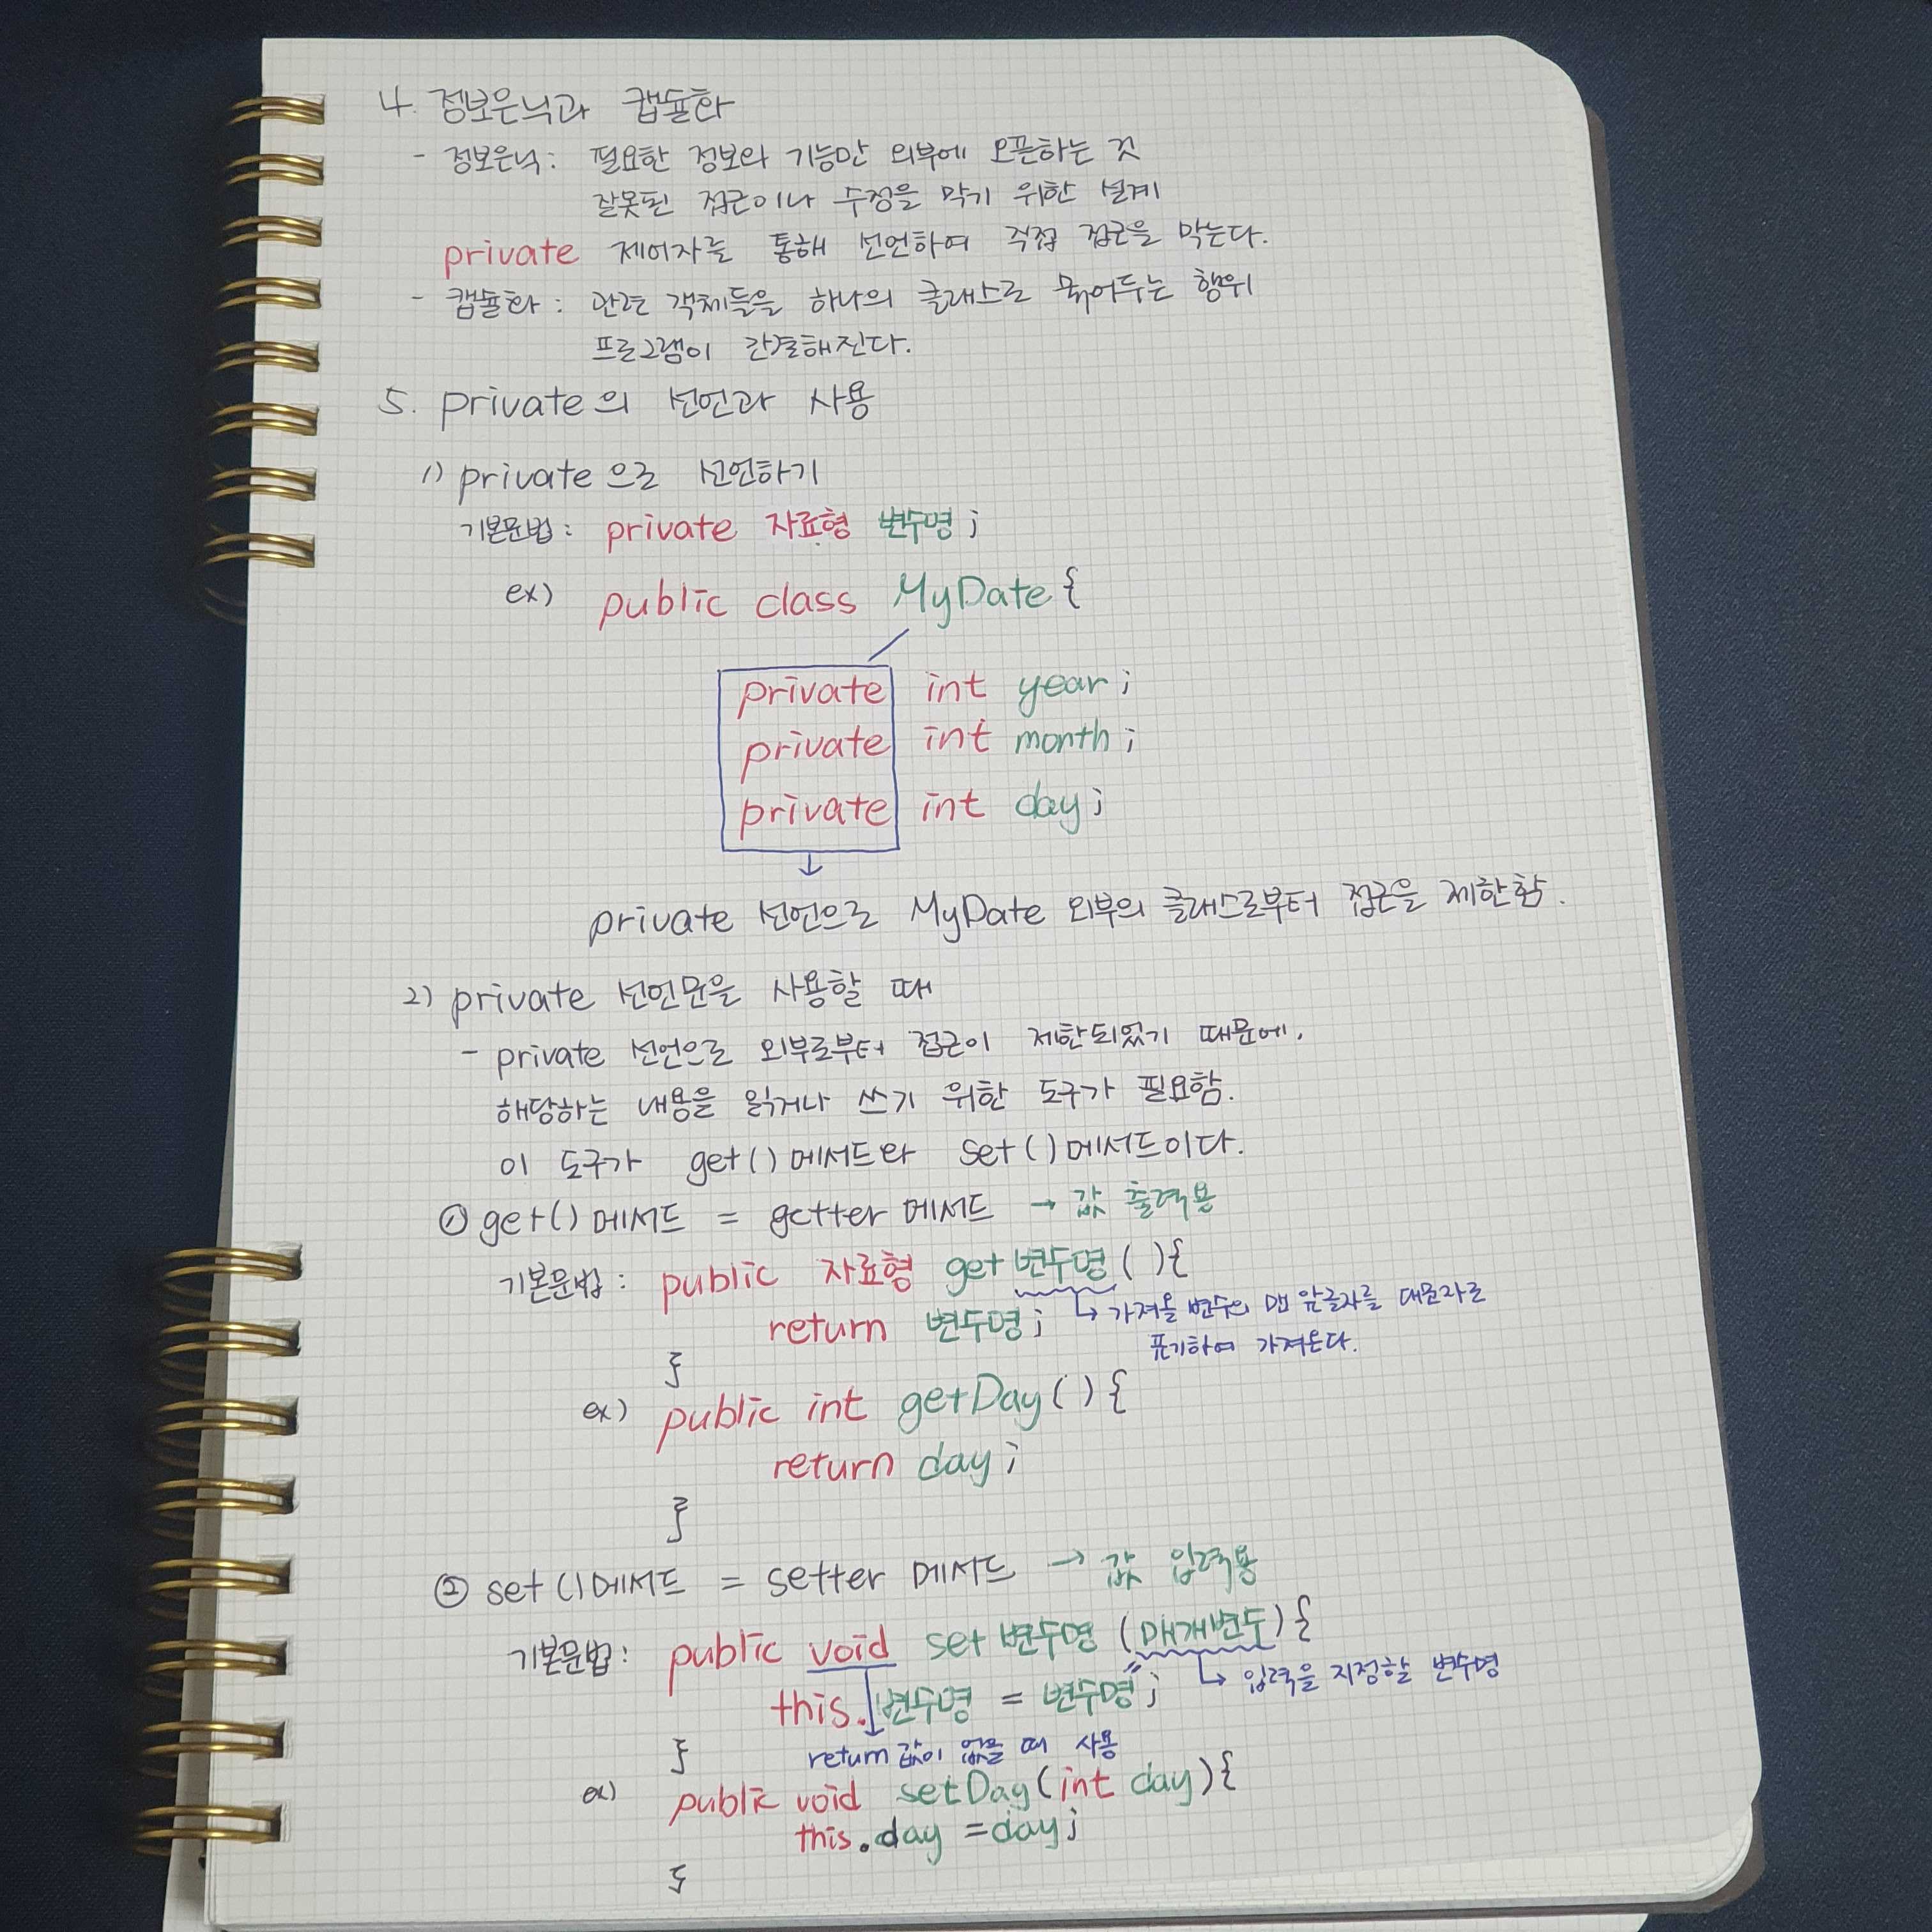 4. 정보은닉과 캡슐화
- 정보은닉: 필요한 정보와 기능만 외부에 오픈하는 것
잘못된 접근이나 수정을 막기 위한 설계
private 제어자를 통해 선언하여 직접 접근을 막는다.
- 캡슐화: 관련 객체들을 하나의 클래스로 묶어두는 행위
프로그램이 간결해진다.
5. private의 선언과 사용
1) private으로 선언하기
기본문법: private 자료형 변수명;
ex) public class MyDate{
private int year;
private int month;
private int day;
private 선언으로 MyDate 외부의 클래스로부터 접근을 제한함.
2) private 선언문을 사용할 때
- private 선언으로 외부로부터 접근이 제한되었기 때문에,
해당하는 내용을 읽거나 쓰기 위한 도구가 필요함.
이 도구가 get()메서드와 set()메서드이다.
① get()메서드 = getter 메서드 → 값 출력용
기본문법: public 자료형 get변수명(){
return 변수명; ↳ 가져올 변수의 맨 앞글자를 대문자로
표기하여 가져온다.
}
ex) public int getDay(){
return day;
}
② set()메서드 = setter 메서드 → 값 입력용
기본문법: public void set변수명(매개변수){
this.변수명 = 변수명"; ↳ 입력을 지정할 변수명
} return값이 없을 때 사용
ex) public void setDay(int day){
this.day = day;
}